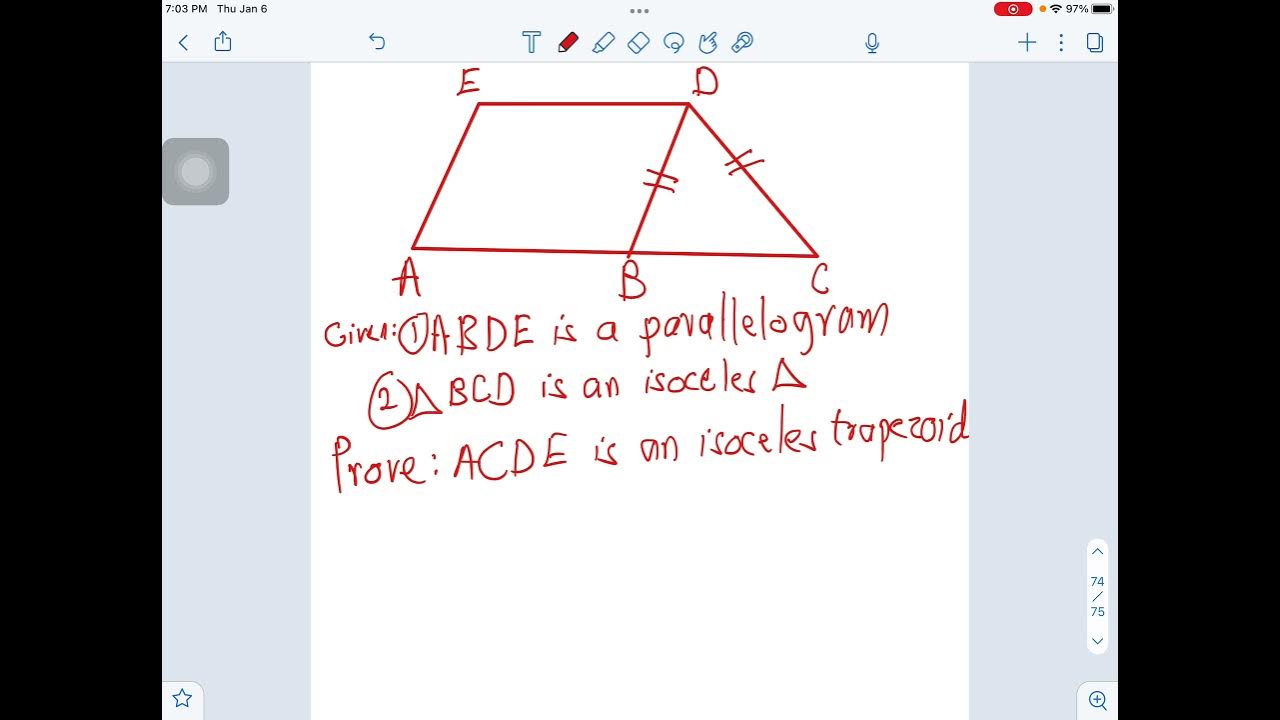 7:03 PM Thu Jan 6
97%
T
E D
A B C
Given: ① ABDE is a parallelogram
② △ BCD is an isoceles △
Prove: ACDE is an isoceles trapezoid
74
/
75